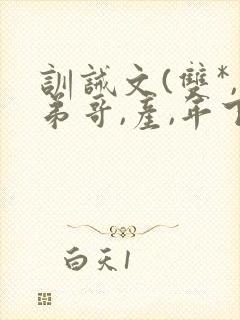 訓誡文(雙*,
弟哥,產,年下
白天1